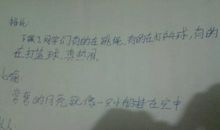 下课了同学们有的在跳绳,有的在打乒乓球,有的
在打蓝球,真热闹
弯弯的月亮就像一只小船挂在空中